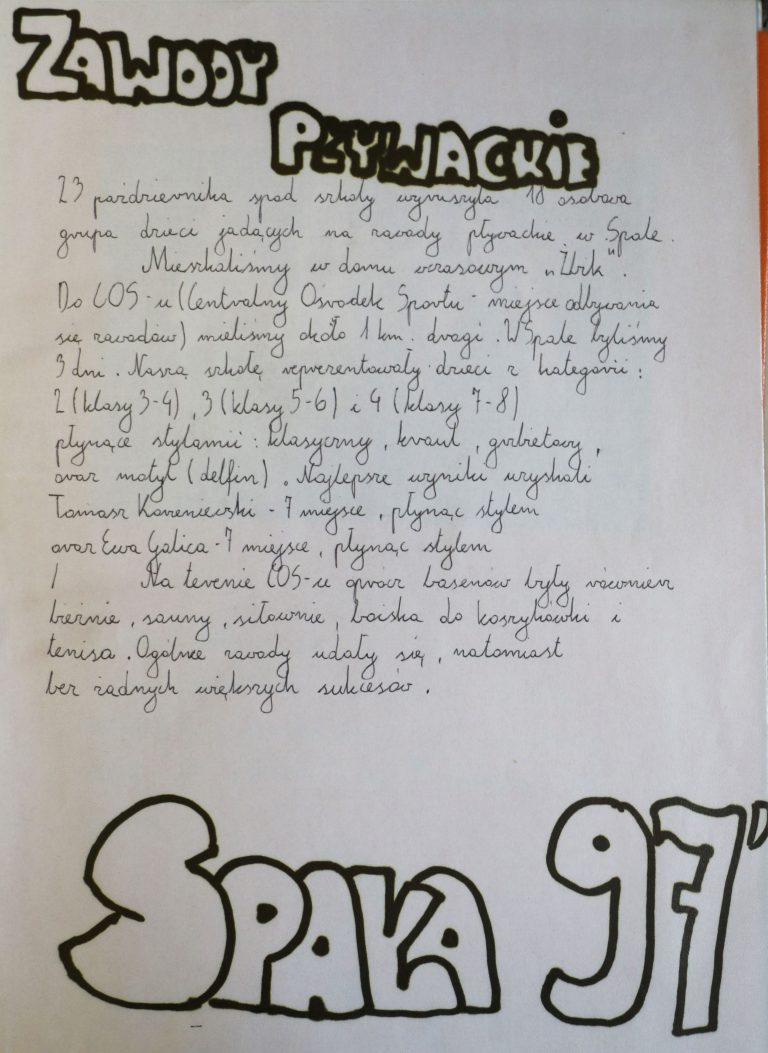 ZAWODY
PŁYWACKIE
23 października spod szkoły wyruszyła 18 osobowa
grupa dzieci jadących na zawody pływackie w Spale.
Mieszkaliśmy w domu wczasowym „Żbik".
Do COS-u (Centralny Ośrodek Sportu - miejsce odbywania
się zawodów) mieliśmy około 1 km. drogi. W Spale byliśmy
3 dni. Naszą szkołę reprezentowały dzieci z kategorii:
2 (klasy 3-4), 3 (klasy 5-6) i 4 (klasy 7-8)
płynące stylami: klasyczny, kraul, grzbietowy,
oraz motyl (delfin). Najlepsze wyniki uzyskali
Tomasz - 7 miejsce, płynąc stylem
oraz Ewa Galica - 7 miejsce, płynąc stylem
Na terenie COS-u oprócz basenów były również
bieżnie, sauny, siłownie, boiska do koszykówki i
tenisa. Ogólnie zawody udały się, natomiast
bez żadnych większych sukcesów.
SPAŁA 97'